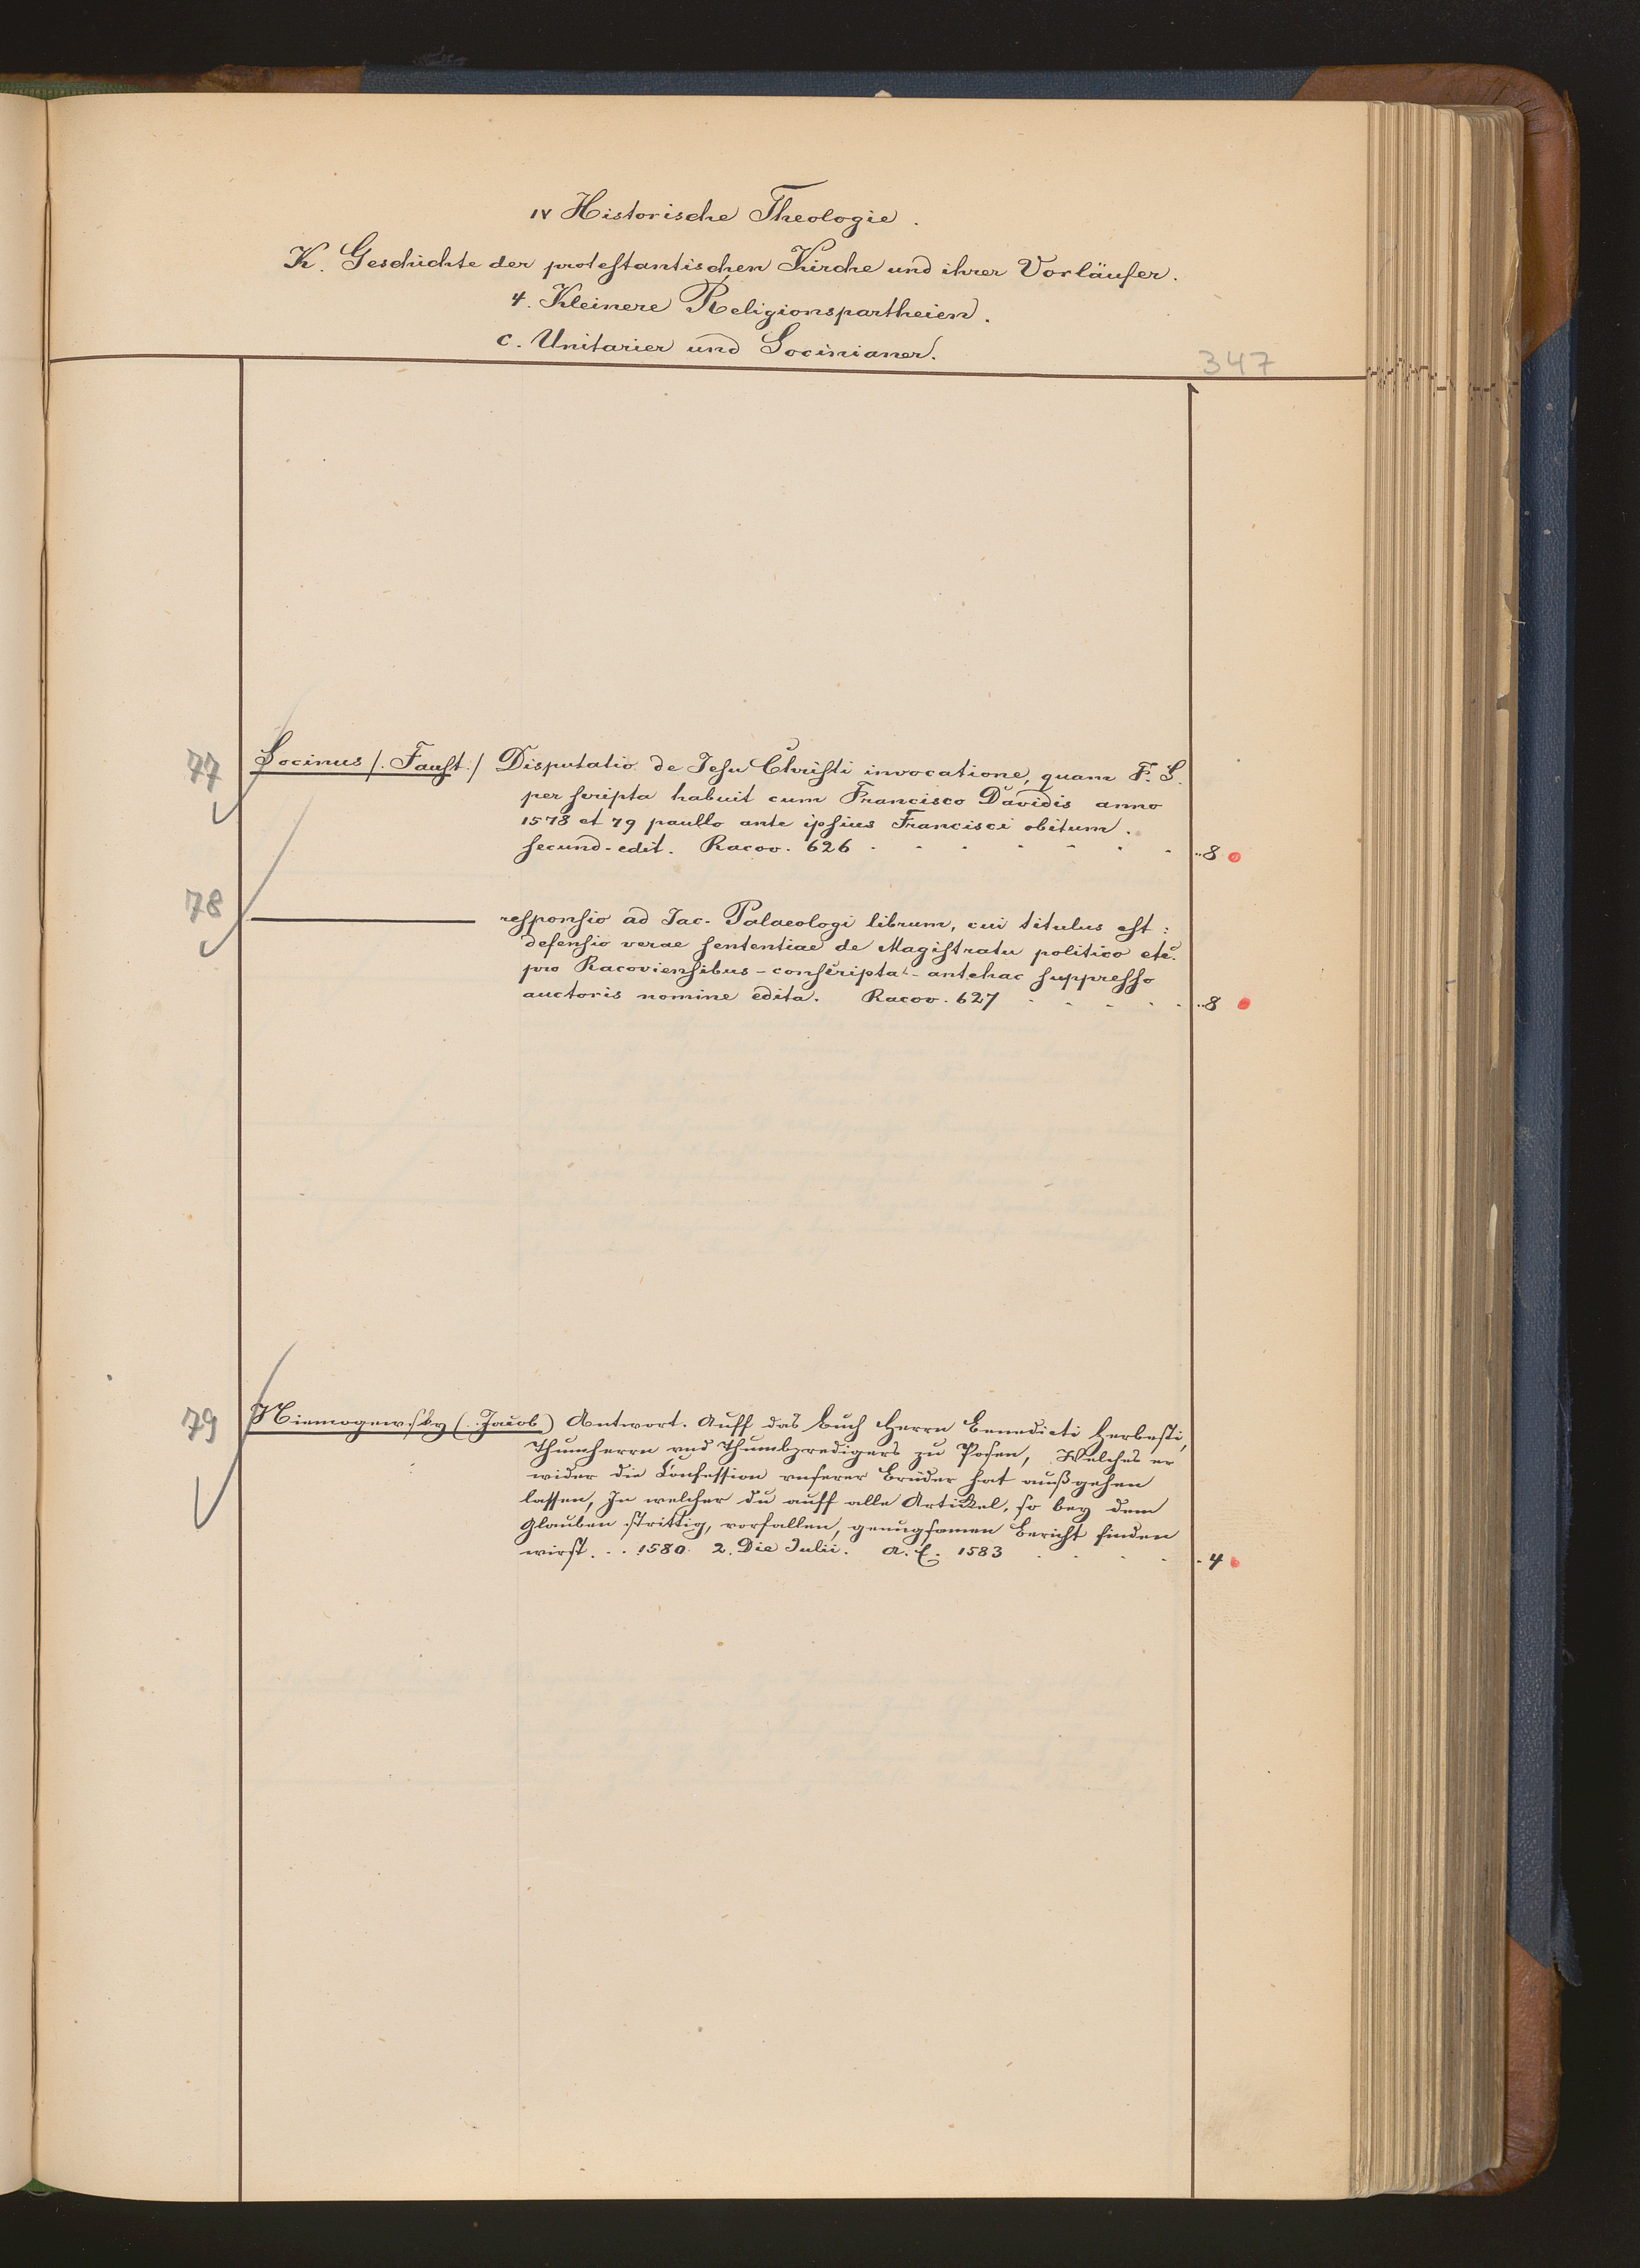 IV Historische Theologie.
K. Geschichte der protestantischen Kirche und ihrer Vorläufer.
4. Kleinere Religionspartheien.
c. Unitarier und Socinianer.
347
77 Socinus /. Faust./ Disputatio de Jesu Christi invocatione, quam F. S.
per scripta habuit cum Francisco Davidis anno
1578 et 79 paullo ante ipsius Francisci obitum.
secund. edit. Racov. 626 . . . . . . . ..8
78 ——— responsio ad Jac. Palaeologi librum, cui titulus est:
defensio verae sententiae de Magistratu politico etc.
pro Racoviensibus - conscripta - antehac suppresso
auctoris nomine edita. Racov. 627 . . . . . ..8
79 Niemogewsky (. Jacob) Antwort. Auff das Buch Herrn Benedicti Herbesti,
Thumherrn vnd Thumbpredigers zu Posen, Welches er
wider die Confession vnserer Brüder hat außgehen
lassen, In welcher du auff alle Artickel, so bey dem
Glauben strittig, vorfallen, genugsamen Bericht finden
wirst. . . 1580. 2. Die Julii. A. E. 1583 . . . . . 4